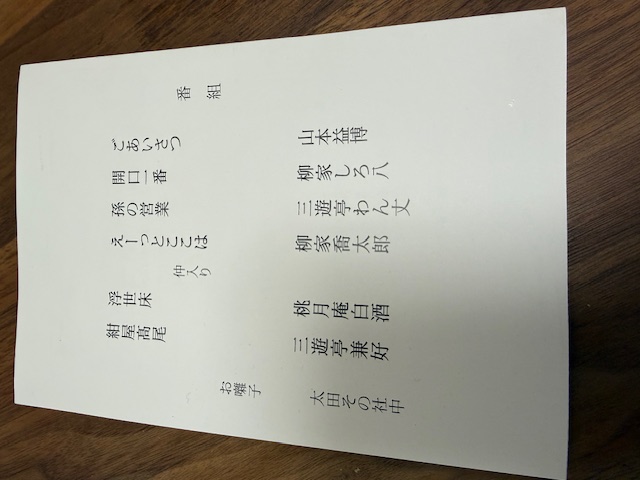 番組
ごあいさつ 山本益博
開口一番 柳家しろ八
孫の営業 三遊亭わん丈
えーっとここは 柳家喬太郎
仲入り
浮世床 桃月庵白酒
紺屋髙尾 三遊亭兼好
お囃子 太田その社中